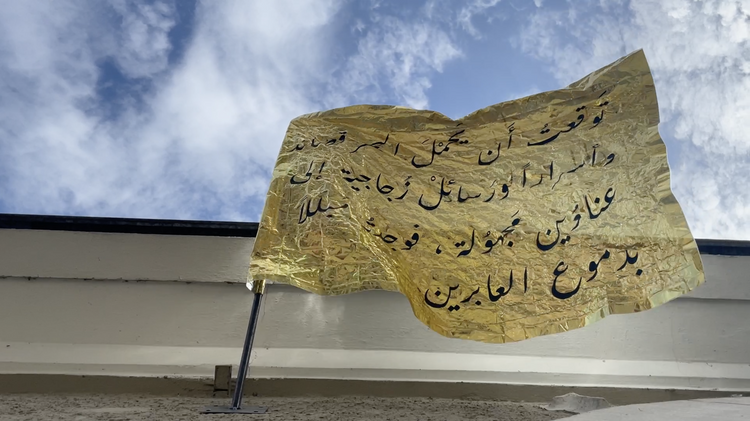 تَوَقعتُ أَن يَحْمِلَ البحر قصائد
وأسراراً ورَسائِلْ زُجاجية إلى
عناوين مَجهُولة، فوجدتهُ مبللاً
بدموع العابرين